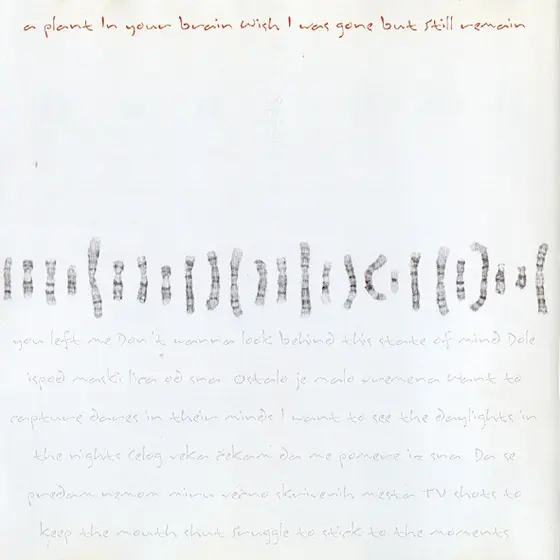 a plant In your brain wish I was gone but still remain
you left me Don't wanna look behind this state of mind Dole
ispod maski lica od sna Ostalo je malo vremena Want to
rapture dares in their minds I want to see the daylights in
the nights Čelog veka čekam da me pomere iz sna Da se
predam nemom miru večno skrivenih mesta TV shots to
keep the mouth shut Struggle to stick to the moments